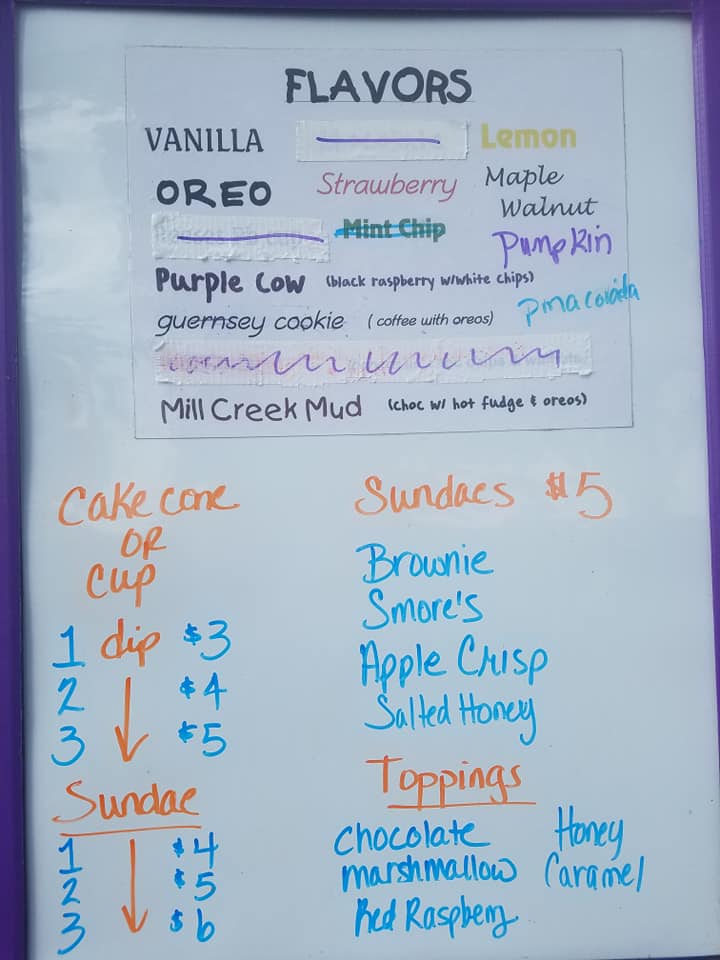 FLAVORS
VANILLA
Lemon
OREO
Strawberry
Maple
Walnut
Mint Chip
Pumpkin
Purple Cow (black raspberry w/white chips)
guernsey cookie (coffee with oreos)
Pinacolada
Mill Creek Mud (choc w/ hot fudge & oreos)
Cake cone
OR
Cup
1 dip $3
2 $4
3 $5
Sundae
1 $4
2 $5
3 $6
Sundaes $5
Brownie
Smore's
Apple Crisp
Salted Honey
Toppings
Chocolate
Honey
marshmallow
Caramel
Red Raspberry